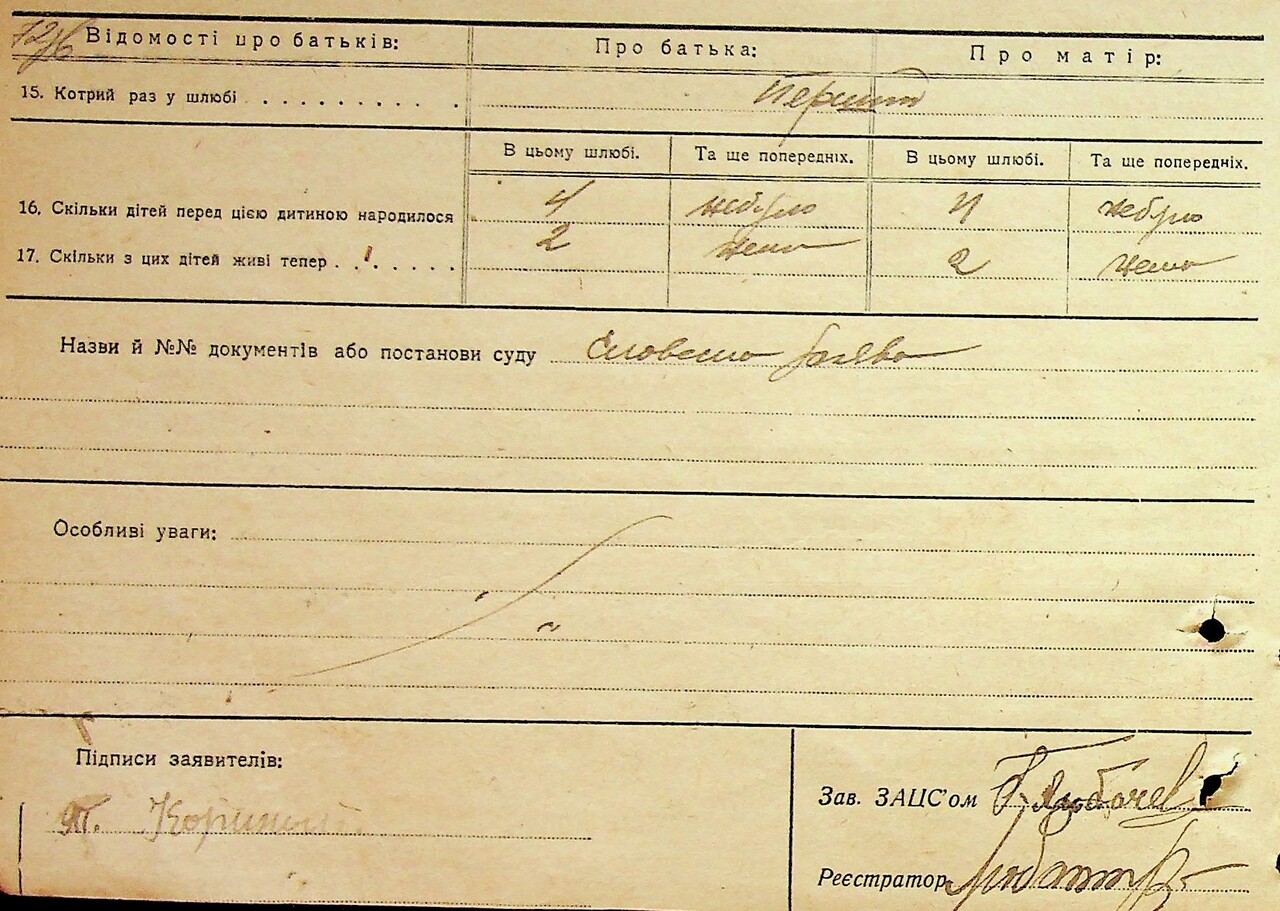 Відомості про батьків: Про батька: Про матір:
15. Котрий раз у шлюбі . . . . . . . . . . Перший
В цьому шлюбі. Та ще попередніх. В цьому шлюбі. Та ще попередніх.
16. Скільки дітей перед цією дитиною народилося 4 небуло 4 небуло
17. Скільки з цих дітей живі тепер . . . . . . . 2 нема 2 нема
Назви й №№ документів або постанови суду Словесна заява
Особливі уваги:
Підписи заявителів:
Зав. ЗАЦС’ом
Реєстратор